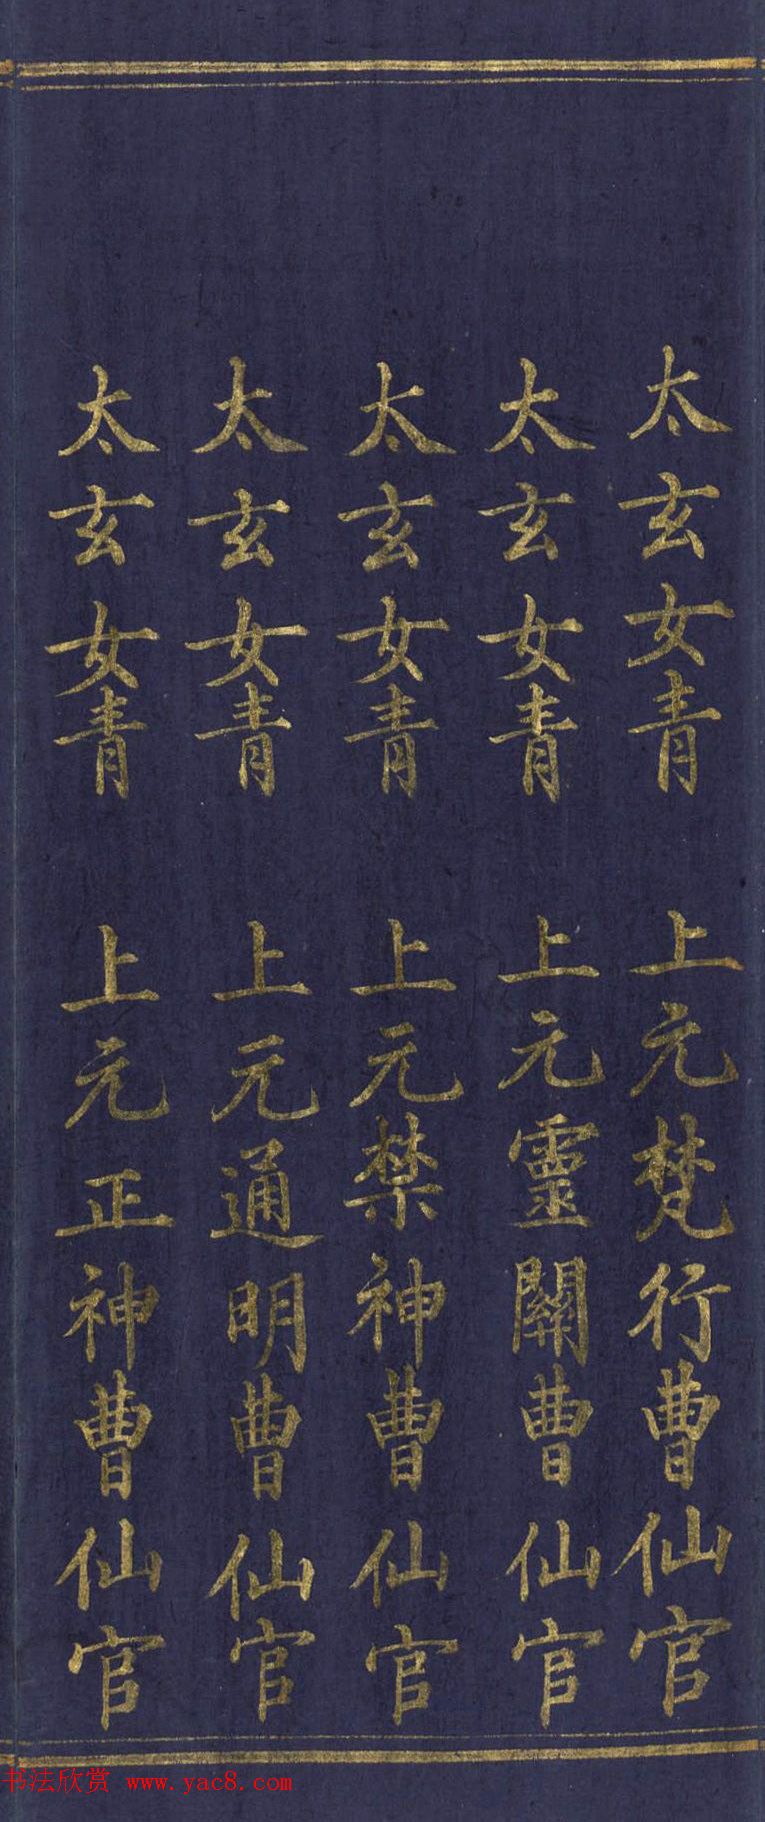 太玄女青 上元梵行曹仙官
太玄女青 上元靈關曹仙官
太玄女青 上元禁神曹仙官
太玄女青 上元通明曹仙官
太玄女青 上元正神曹仙官
书法欣赏 www.yac8.com